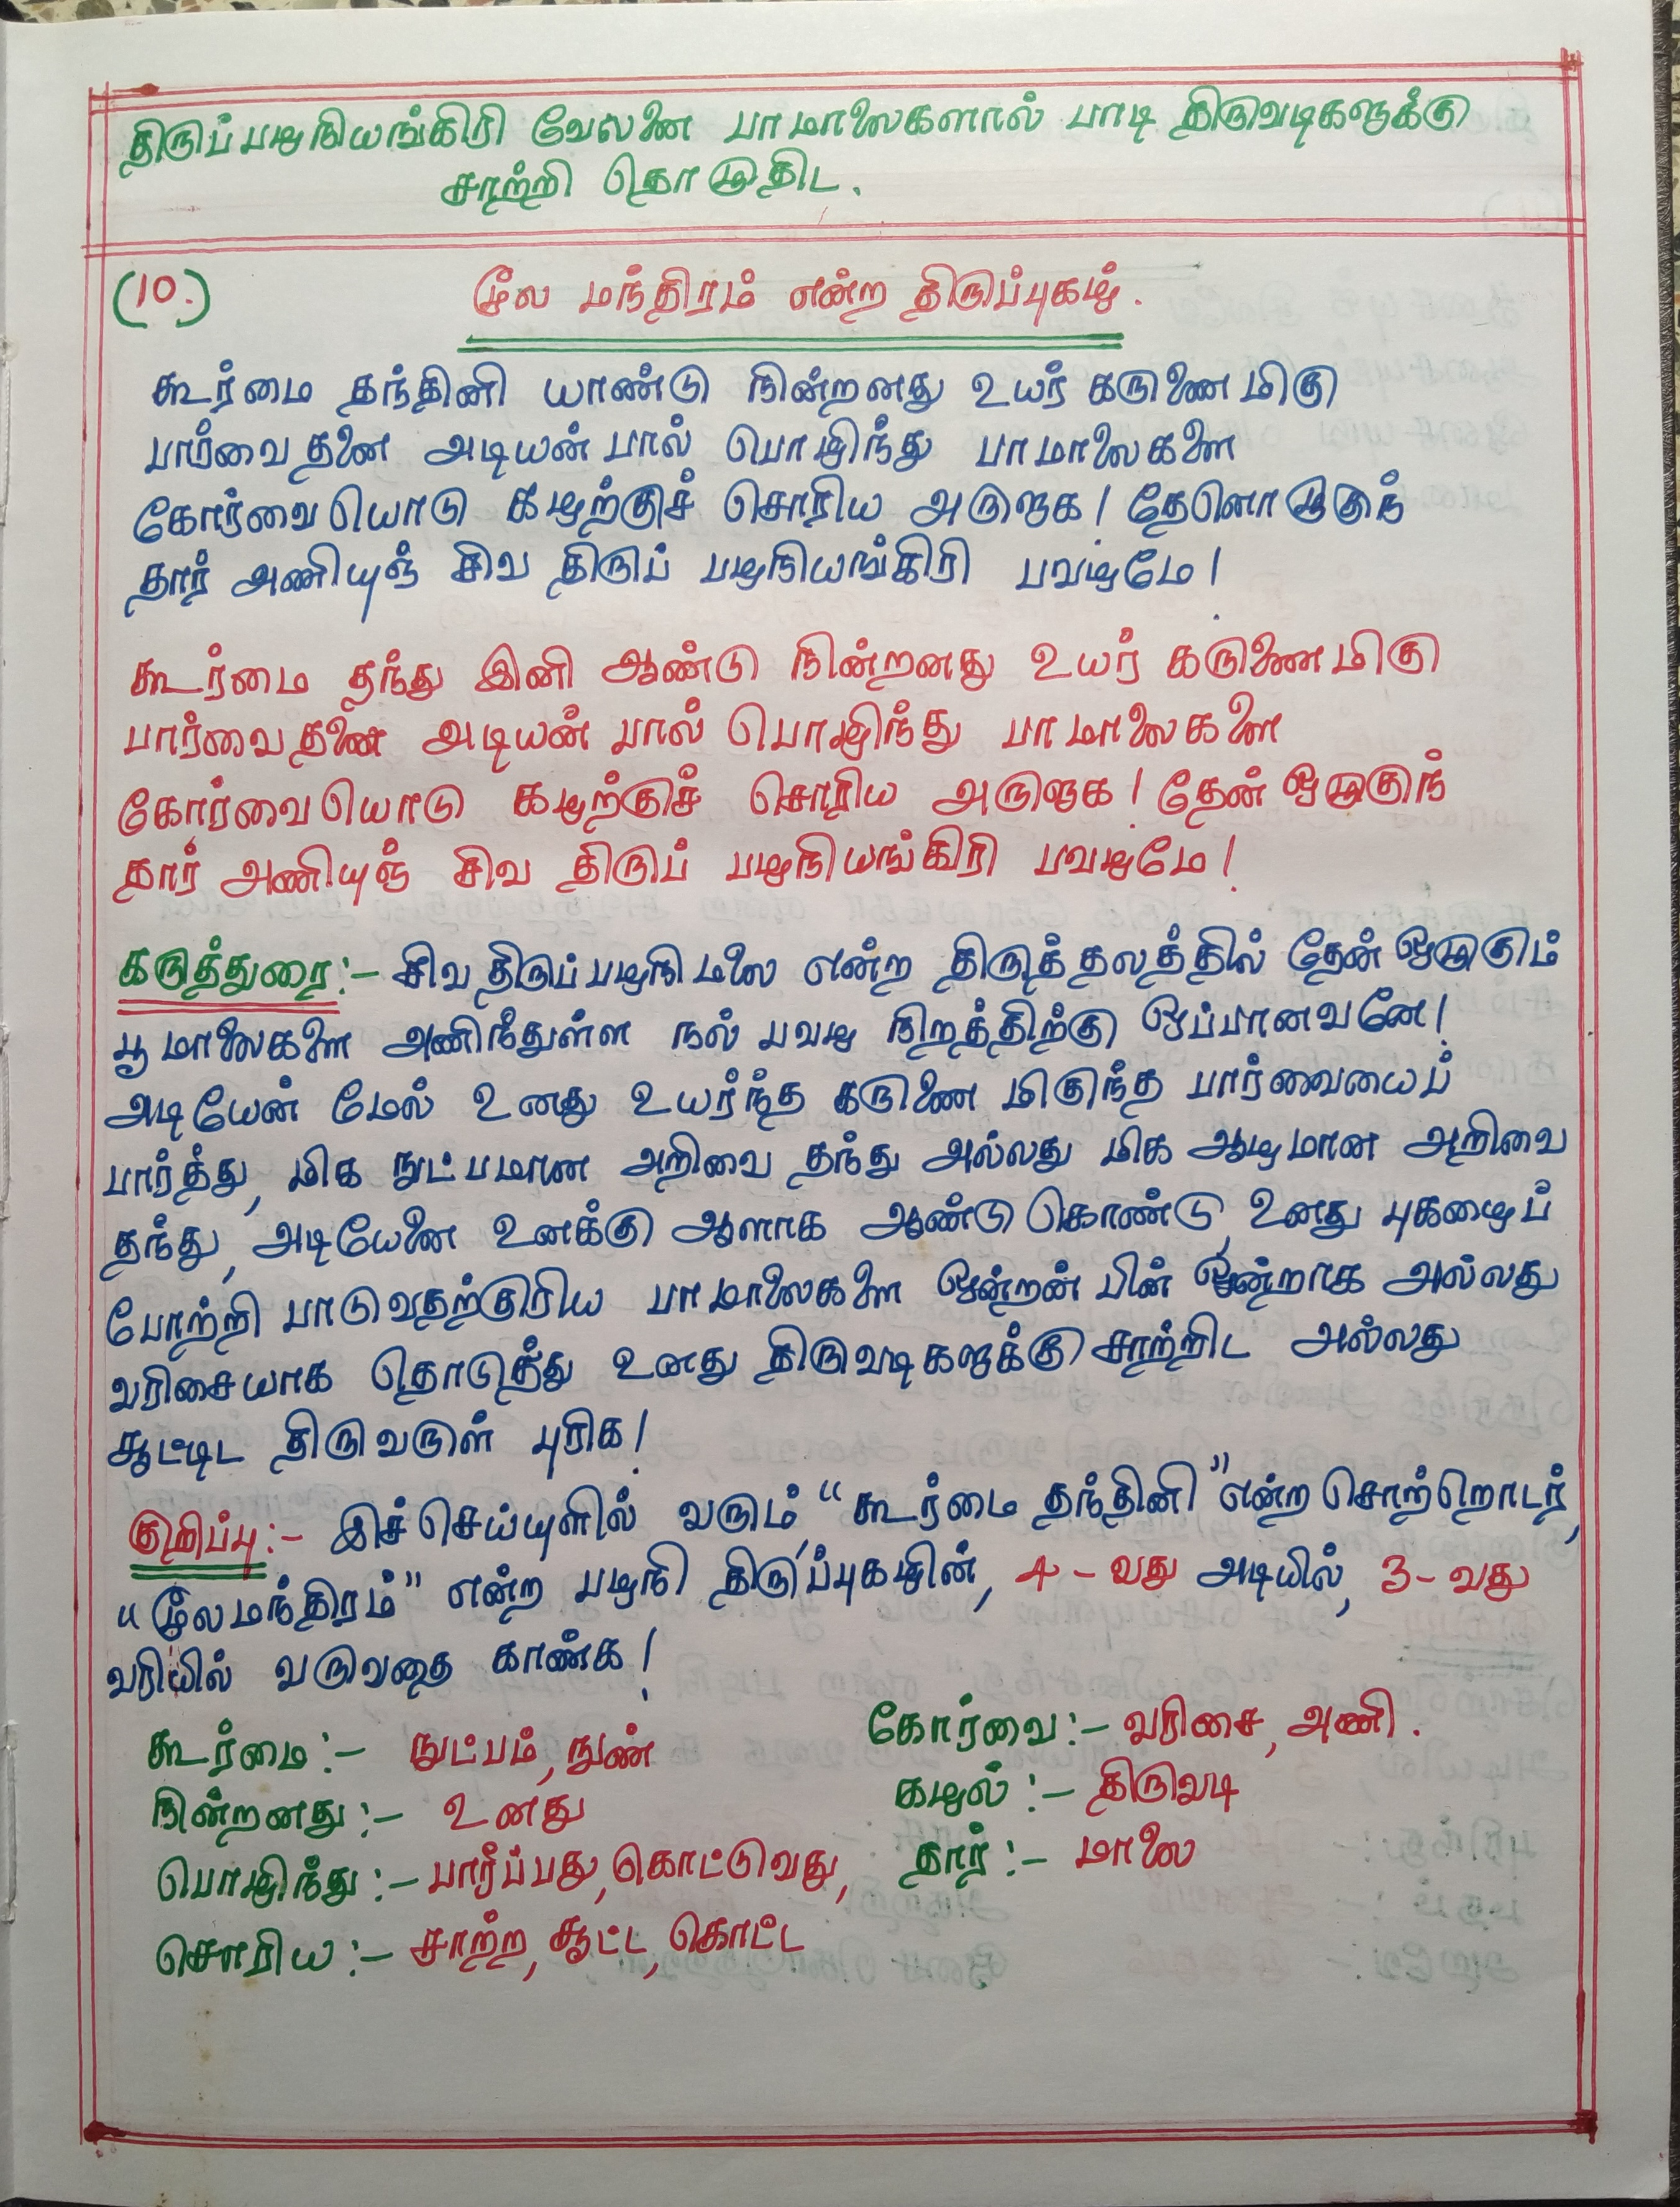 திருப்பழநியங்கிரி வேலனை பாமாலைகளால் பாடி திருவடிகளுக்கு
சாற்றி தொழுதிட.
(10.) மூல மந்திரம் என்ற திருப்புகழ்.
கூர்மை தந்தினி யாண்டு நின்றனது உயர் கருணை மிகு
பார்வை தனை அடியன் பால் பொழிந்து பாமாலைகளை
கோர்வையொடு கழற்குச் சொரிய அருளுக! தேனொழுகுந்
தார் அணியுஞ் சிவ திருப் பழநியங்கிரி பவழமே!
கூர்மை தந்து இனி ஆண்டு நின்றனது உயர் கருணை மிகு
பார்வை தனை அடியன் பால் பொழிந்து பாமாலைகளை
கோர்வையொடு கழற்குச் சொரிய அருளுக! தேன் ஒழுகுந்
தார் அணியுஞ் சிவ திருப் பழநியங்கிரி பவழமே!
கருத்துரை:- சிவ திருப்பழநி மலை என்ற திருத்தலத்தில் தேன் ஒழுகும்
பூ மாலைகளை அணிந்துள்ள நல் பவழ நிறத்திற்கு ஒப்பானவனே!
அடியேன் மேல் உனது உயர்ந்த கருணை மிகுந்த பார்வையைப்
பார்த்து, மிக நுட்பமான அறிவை தந்து அல்லது மிக ஆழமான அறிவை
தந்து, அடியேனை உனக்கு ஆளாக ஆண்டு கொண்டு, உனது புகழைப்
போற்றி பாடுவதற்குரிய பாமாலைகளை ஒன்றன் பின் ஒன்றாக அல்லது
வரிசையாக தொடுத்து உனது திருவடிகளுக்கு சாற்றிட அல்லது
சூட்டிட திருவருள் புரிக!
குறிப்பு:- இச் செய்யுளில் வரும், "கூர்மை தந்தினி" என்ற சொற்றொடர்,
"மூலமந்திரம்" என்ற பழநி திருப்புகழின், 4-வது அடியில், 3-வது
வரியில் வருவதை காண்க!
கூர்மை:- நுட்பம், நுண்
நின்றனது:- உனது
பொழிந்து:- பார்ப்பது, கொட்டுவது,
சொரிய:- சாற்ற, சூட்ட, கொட்ட
கோர்வை:- வரிசை, அணி.
கழல்:- திருவடி
தார்:- மாலை